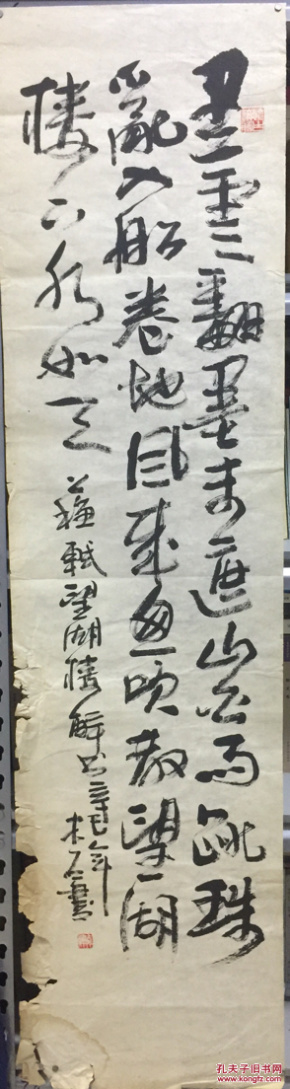 黑雲翻墨未遮山白雨跳珠
亂入船卷地風來忽吹散望湖
樓下水如天
蘇軾望湖樓醉書辛巳年
木石書
孔夫子旧书网